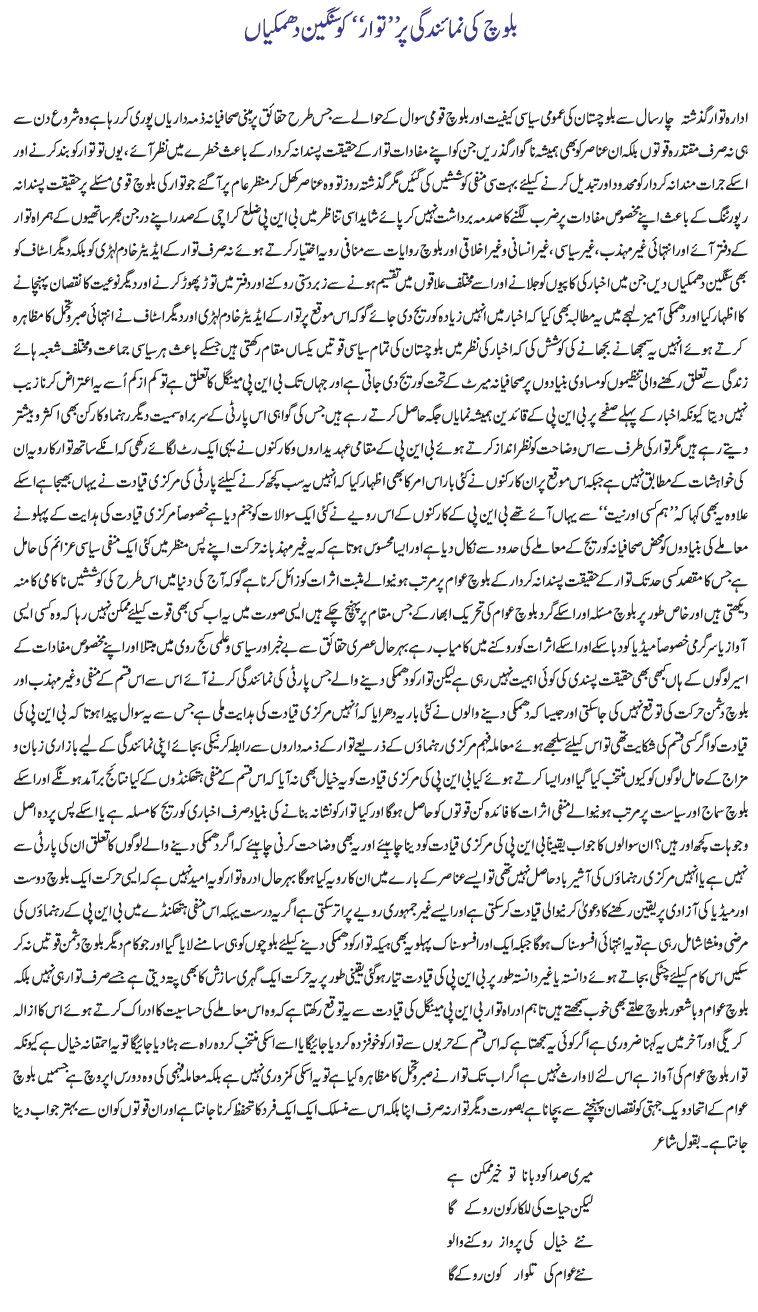 بلوچ کی نمائندگی پر ’’توار‘‘ کو سنگین دھمکیاں
ادارہ توار گذشتہ چار سال سے بلوچستان کی عمومی سیاسی کیفیت اور بلوچ قومی سوال کے حوالے سے جس طرح حقائق پر مبنی صحافیانہ ذمہ داریاں پوری کر رہا ہے وہ شروع دن سے
ہی نہ صرف مقتدرہ قوتوں بلکہ ان عناصر کو بھی ہمیشہ ناگوار گذریں جن کو اپنے مفادات توار کے حقیقت پسندانہ کردار کے باعث خطرے میں نظر آئے ، یوں تو توار کو بند کرنے اور
اسکے جرات مندانہ کردار کو محدود اور تبدیل کرنے کیلئے بہت سی منفی کوششیں کی گئیں مگر گذشتہ روز تو وہ عناصر کھل کر منظر عام پر آگئے جو توار کی بلوچ قومی مسئلے پر حقیقت پسندانہ
رپورٹنگ کے باعث اپنے مخصوص مفادات پر ضرب لگنے کا صدمہ برداشت نہیں کر پائے شاید اسی تناظر میں بی این پی ضلع کراچی کے صدر اپنے درجن بھر ساتھیوں کے ہمراہ توار
کے دفتر آئے اور انتہائی غیر مہذب ، غیر سیاسی ، غیر انسانی و غیر اخلاقی اور بلوچ روایات سے منافی رویہ اختیار کرتے ہوئے نہ صرف توار کے ایڈیٹر خادم لہڑی کو بلکہ دیگر اسٹاف کو
بھی سنگین دھمکیاں دیں جن میں اخبار کی کاپیوں کو جلانے اور اسے مختلف علاقوں میں تقسیم ہونے سے زبردستی روکنے اور دفتر میں توڑ پھوڑ کرنے اور دیگر نوعیت کا نقصان پہنچانے
کا اظہار کیا اور دھمکی آمیز لہجے میں یہ مطالبہ بھی کیا کہ اخبار میں انہیں زیادہ کوریج دی جائے گو کہ اس موقع پر توار کے ایڈیٹر خادم لہڑی اور دیگر اسٹاف نے انتہائی صبر و تحمل کا مظاہرہ
کرتے ہوئے انہیں یہ سمجھانے بجھانے کی کوشش کی کہ اخبار کی نظر میں بلوچستان کی تمام سیاسی قوتیں یکساں مقام رکھتی ہیں جسکے باعث ہر سیاسی جماعت و مختلف شعبہ ہائے
زندگی سے تعلق رکھنے والی تنظیموں کو مساوی بنیادوں پر صحافیانہ میرٹ کے تحت کوریج دی جاتی ہے اور جہاں تک بی این پی مینگل کا تعلق ہے تو کم از کم اُسے یہ اعتراض کرنا زیب
نہیں دیتا کیونکہ اخبار کے پہلے صفحے پر بی این پی کے قائدین ہمیشہ نمایاں جگہ حاصل کرتے رہے ہیں جس کی گواہی اس پارٹی کے سربراہ سمیت دیگر رہنما و کارکن بھی اکثر و بیشتر
دیتے رہے ہیں مگر توار کی طرف سے اس وضاحت کو نظر انداز کرتے ہوئے بی این پی کے مقامی عہدیداروں و کارکنوں نے یہی ایک رٹ لگائے رکھی کہ انکے ساتھ توار کا رویہ ان
کی خواہشات کے مطابق نہیں ہے جبکہ اس موقع پر ان کارکنوں نے کئی بار اس امر کا بھی اظہار کیا کہ انہیں یہ سب کچھ کرنے کیلئے پارٹی کی مرکزی قیادت نے یہاں بھیجا ہے اسکے
علاوہ یہ بھی کہا کہ ’’ہم کسی اور نیت‘‘ سے یہاں آئے تھے بی این پی کے کارکنوں کے اس رویے نے کئی ایک سوالات کو جنم دیا ہے خصوصاً مرکزی قیادت کی ہدایت کے پہلو نے
معاملے کی بنیادوں کو محض صحافیانہ کوریج کے معاملے کی حدود سے نکال دیا ہے اور ایسا محسوس ہوتا ہے کہ یہ غیر مہذبانہ حرکت اپنے پس منظر میں کئی ایک منفی سیاسی عزائم کی حامل
ہے جس کا مقصد کسی حد تک توار کے حقیقت پسندانہ کردار کے بلوچ عوام پر مرتب ہونیوالے مثبت اثرات کو زائل کرنا ہے گو کہ آج کی دنیا میں اس طرح کی کوششیں ناکامی کا منہ
دیکھتی ہیں اور خاص طور پر بلوچ مسئلہ اور اسکے گرد بلوچ عوام کی تحریک ابھار کے جس مقام پر پہنچ چکے ہیں ایسی صورت میں یہ اب کسی بھی قوت کیلئے ممکن نہیں رہا کہ وہ کسی ایسی
آواز یا سرگرمی خصوصاً میڈیا کو دبا سکے اور اسکے اثرات کو روکنے میں کامیاب رہے بہر حال عصری حقائق سے بے خبر اور سیاسی و علمی کج روی میں مبتلا اور اپنے مخصوص مفادات کے
اسیر لوگوں کے ہاں کبھی بھی حقیقت پسندی کی کوئی اہمیت نہیں رہی ہے لیکن توار کو دھمکی دینے والے جس پارٹی کی نمائندگی کرنے آئے اس سے اس قسم کے منفی و غیر مہذب اور
بلوچ دشمن حرکت کی توقع نہیں کی جاسکتی اور جیسا کہ دھمکی دینے والوں نے کئی بار یہ دھرایا کہ اُنہیں مرکزی قیادت کی ہدایت ملی ہے جس سے یہ سوال پیدا ہوتا کہ بی این پی کی
قیادت کو اگر کسی قسم کی شکایت تھی تو اس کیلئے سلجھے ہوئے معاملہ فہم مرکزی رہنماؤں کے ذریعے توار کے ذمہ داروں سے رابطہ کرنیکی بجائے اپنی نمائندگی کے لیے بازاری زبان و
مزاج کے حامل لوگوں کو کیوں منتخب کیا گیا اور ایسا کرتے ہوئے کیا بی این پی کی مرکزی قیادت کو یہ خیال بھی نہ آیا کہ اس قسم کے منفی ہتھکنڈوں کے کیا نتائج برآمد ہونگے اور اسکے
بلوچ سماج اور سیاست پر مرتب ہونیوالے منفی اثرات کا فائدہ کن قوتوں کو حاصل ہوگا اور کیا توار کو نشانہ بنانے کی بنیاد صرف اخباری کوریج کا مسلہ ہے یا اسکے پس پردہ اصل
وجوہات کچھ اور ہیں؟ ان سوالوں کا جواب یقیناً بی این پی کی مرکزی قیادت کو دینا چاہیئے اور یہ بھی وضاحت کرنی چاہیئے کہ اگر دھمکی دینے والے لوگوں کا تعلق ان کی پارٹی سے
نہیں ہے یا انہیں مرکزی رہنماؤں کی آشیرباد حاصل نہیں تھی تو ایسے عناصر کے بارے میں ان کا رویہ کیا ہوگا بہر حال ادرہ توار کو یہ امید نہیں ہے کہ ایسی حرکت ایک بلوچ دوست
اور میڈیا کی آزادی پر یقین رکھنے کا دعویٰ کرنیوالی قیادت کرسکتی ہے اور ایسے غیر جمہوری رویے پر اتر سکتی ہے اگر یہ درست ہیکہ اس منفی ہتھکنڈے میں بی این پی کے رہنماؤں کی
مرضی و منشا شامل رہی ہے تو یہ انتہائی افسوسناک ہوگا جبکہ ایک اور افسوسناک پہلو یہ بھی ہیکہ توار کو دھمکی دینے کیلئے بلوچوں کو ہی سامنے لایا گیا اور جو کام دیگر بلوچ دشمن قوتیں نہ کر
سکیں اس کام کیلئے چٹکی بجاتے ہوئے دانستہ یا غیر دانستہ طور پر بی این پی کی قیادت تیار ہوگئی یقینی طور پر یہ حرکت ایک گہری سازش کا بھی پتہ دیتی ہے جسے صرف توار ہی نہیں بلکہ
بلوچ عوام و باشعور بلوچ حلقے بھی خوب سمجھتے ہیں تاہم ادراہ توار بی این پی مینگل کی قیادت سے یہ توقع رکھتا ہے کہ وہ اس معاملے کی حساسیت کا ادراک کرتے ہوئے اس کا ازالہ
کریگی اور آخر میں یہ کہنا ضروری ہے اگر کوئی یہ سمجھتا ہے کہ اس قسم کے حربوں سے توار کو خوفزدہ کر دیا جائیگا یا اسے اسکی منتخب کردہ راہ سے ہٹا دیا جائیگا تو یہ احمقانہ خیال ہے کیونکہ
توار بلوچ عوام کی آواز ہے اس لئے لاوارث نہیں ہے اگر اب تک توار نے صبر و تحمل کا مظاہرہ کیا ہے تو یہ اسکی کمزوری نہیں ہے بلکہ معاملہ فہمی کی وہ دورس اپروچ ہے جسمیں بلوچ
عوام کے اتحاد و یک جہتی کو نقصان پہنچنے سے بچانا ہے بصورت دیگر توار نہ صرف اپنا بلکہ اس سے منسلک ایک ایک فرد کا تحفظ کرنا جانتا ہے اور ان قوتوں کو ان سے بہتر جواب دینا
جانتا ہے۔ بقول شاعر
میری صدا کو دبانا تو خیر ممکن ہے
لیکن حیات کی للکار کون روکے گا
نئے خیال کی پرواز روکنے والو
نئے عوام کی تلوار کون روکے گا